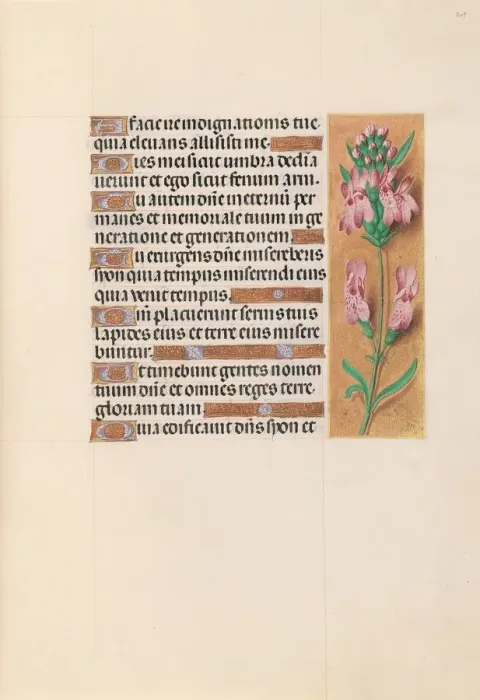 205
A facie ire indignationis tue
quia elevans allisisti me.
Dies mei sicut umbra declina
verunt et ego sicut fenum arui.
Tu autem dñe in eternũ per
manes et memoriale tuum in ge
neratione et generationem.
Tu exurgens dñe misereberis
syon quia tempus miserendi eius
quia venit tempus.
Qm̃ placuerunt servis tuis
lapides eius et terre eius misere
buntur.
Et timebunt gentes nomen
tuum dñe et omnes reges terre
gloriam tuam.
Quia edificavit dñs syon et